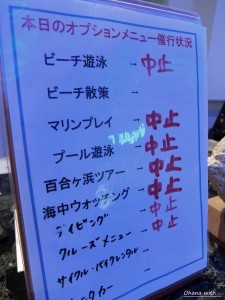 本日のオプションメニュー催行状況
ビーチ遊泳 → 中止
ビーチ散策 →
マリンプレイ → 中止
プール遊泳 → 中止
百合ヶ浜ツアー → 中止
海中ウォッチング → 中止
ダイビング → 中止
クルーズメニュー → 中止
サイクル・バイクレンタル →
タカー →
Ohana with...